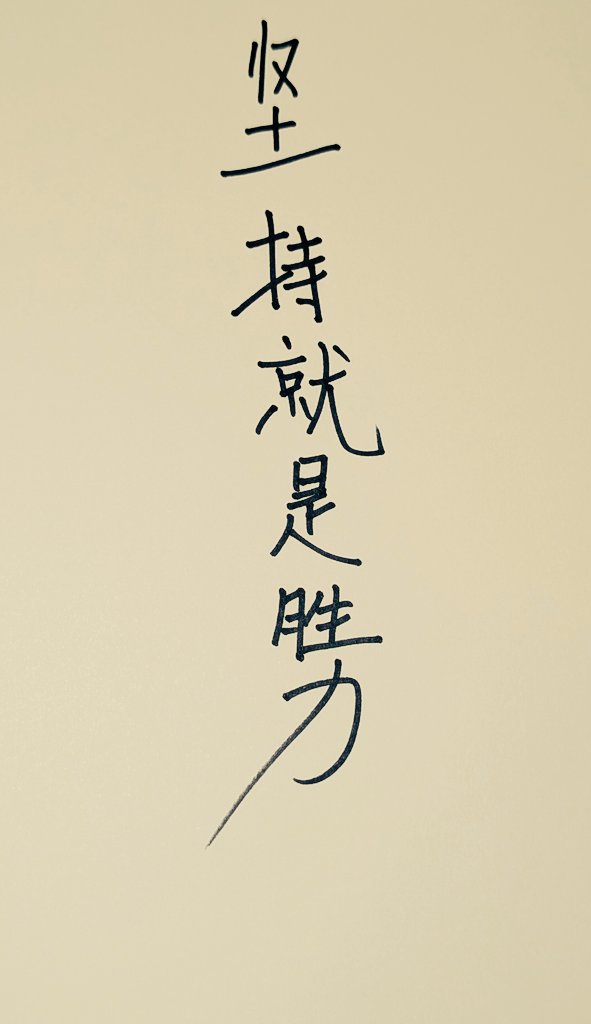 坚持就是胜力